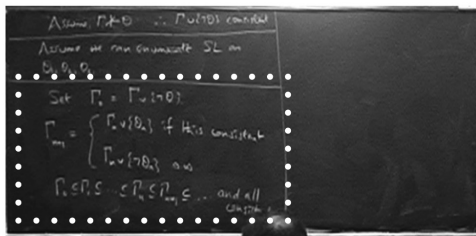 Assume Γ⊬θ ∴ Γ∪{¬θ} consistent
Assume we can enumerate SL as
θ₁, θ₂, θ₃
Set Γ₀ = Γ∪{¬θ}
Γₙ₊₁ = { Γₙ∪{θₙ} if this is consistent
Γₙ∪{¬θₙ} o.w.
Γ₀ ⊆ Γ₁ ⊆ ... ⊆ Γₙ ⊆ Γₙ₊₁ ⊆ ... and all